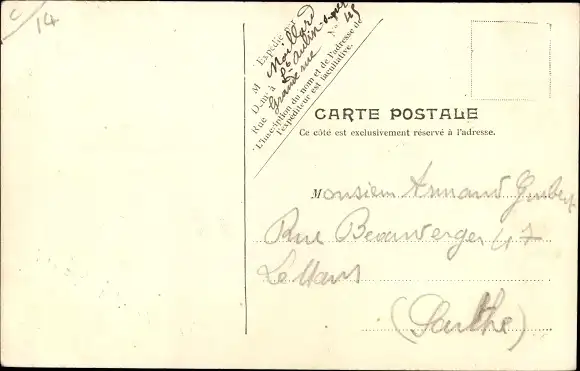 14
Expédié par
M Maillard
D-nt à St Aubin-s-mer
Rue Grande rue N° 45
L'inscription du nom et de l'adresse de
l'expéditeur est facultative.
CARTE POSTALE
Ce côté est exclusivement réservé à l'adresse.
Monsieur Armand
Rue Beauverger 47
Le Mans
(Sarthe)